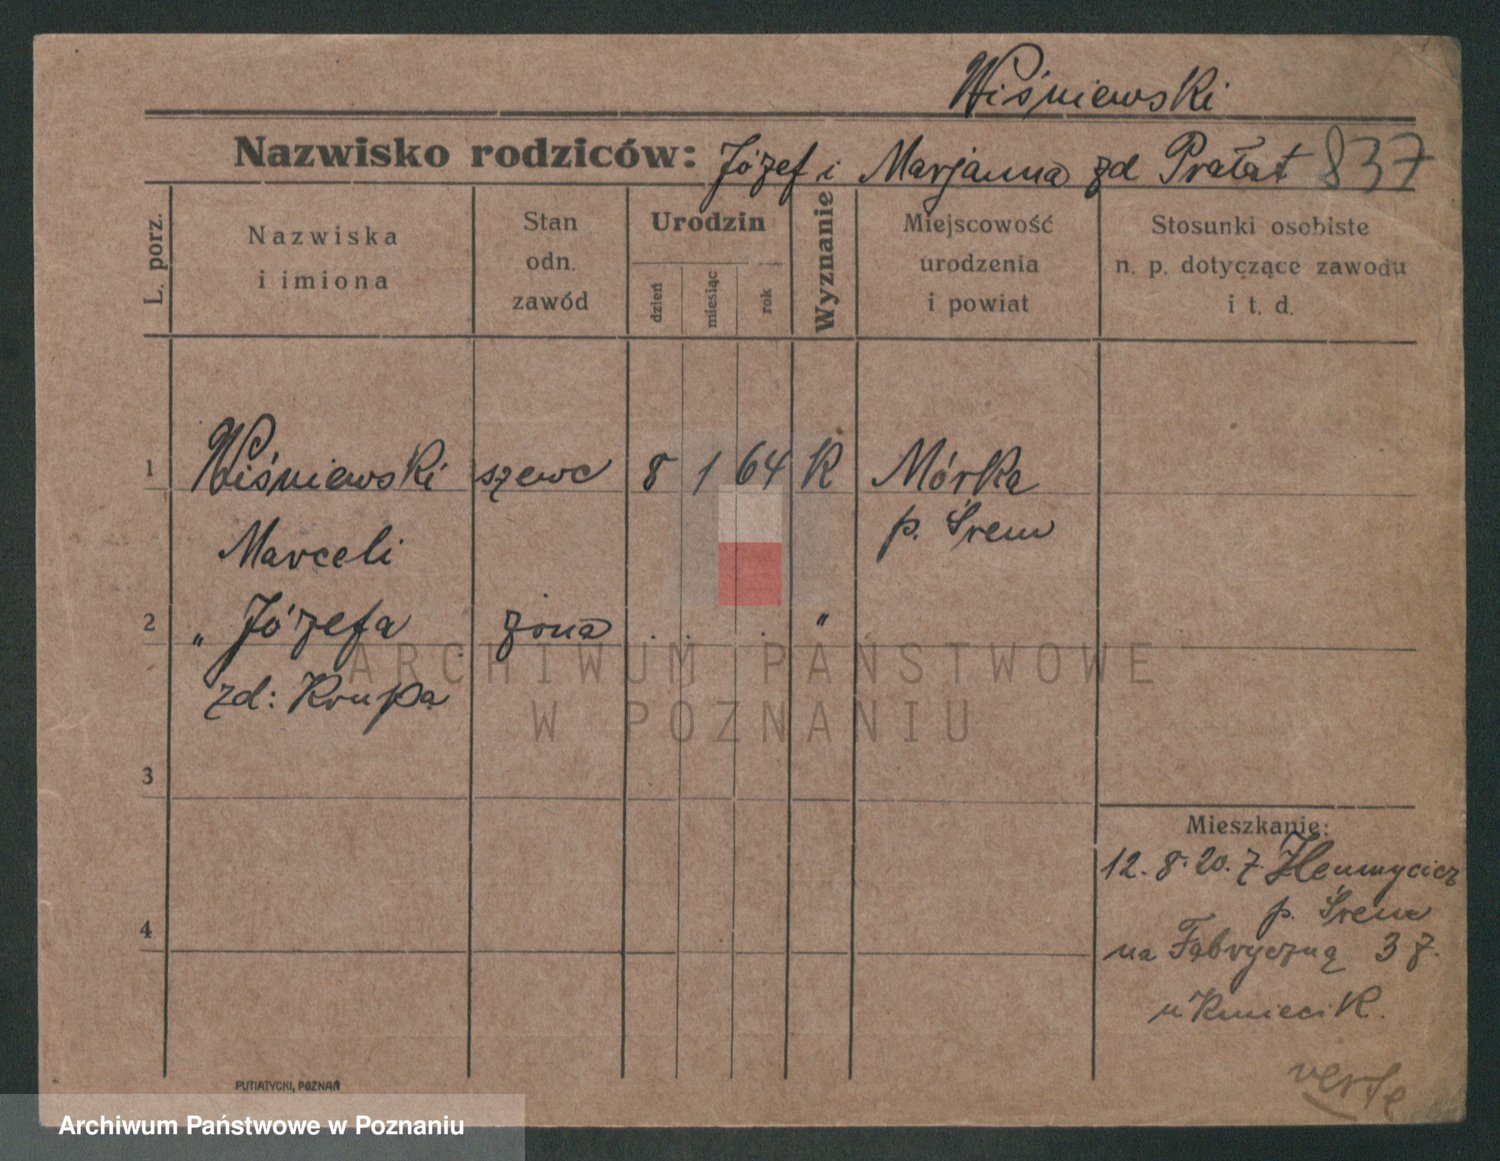 Wiśniewski
Nazwisko rodziców: Józef i Marjanna zd Prałat 837
L. porz.
Nazwiska
i imiona
Stan
odn.
zawód
Urodzin
dzień
miesiąc
rok
Wyznanie
Miejscowość
urodzenia
i powiat
Stosunki osobiste
n. p. dotyczące zawodu
i t. d.
1 Wiśniewski szewc 8 1 64 K Mórka
Marceli p. Śrem
2 " Józefa żona . . . "
zd: Krupa
ARCHIWUM PAŃSTWOWE
W POZNANIU
3
4
Mieszkanie:
12. 8. 20. z
p. Śrem
na Fabryczną 37.
u Kmiecik.
verte
PUTIATYCKI, POZNAŃ
Archiwum Państwowe w Poznaniu